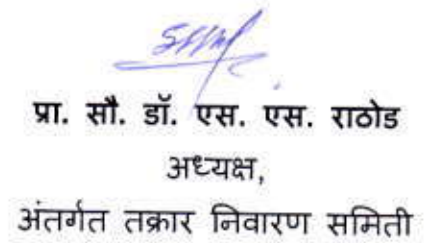 प्रा. सौ. डॉ. एस. एस. राठोड
अध्यक्ष,
अंतर्गत तक्रार निवारण समिती